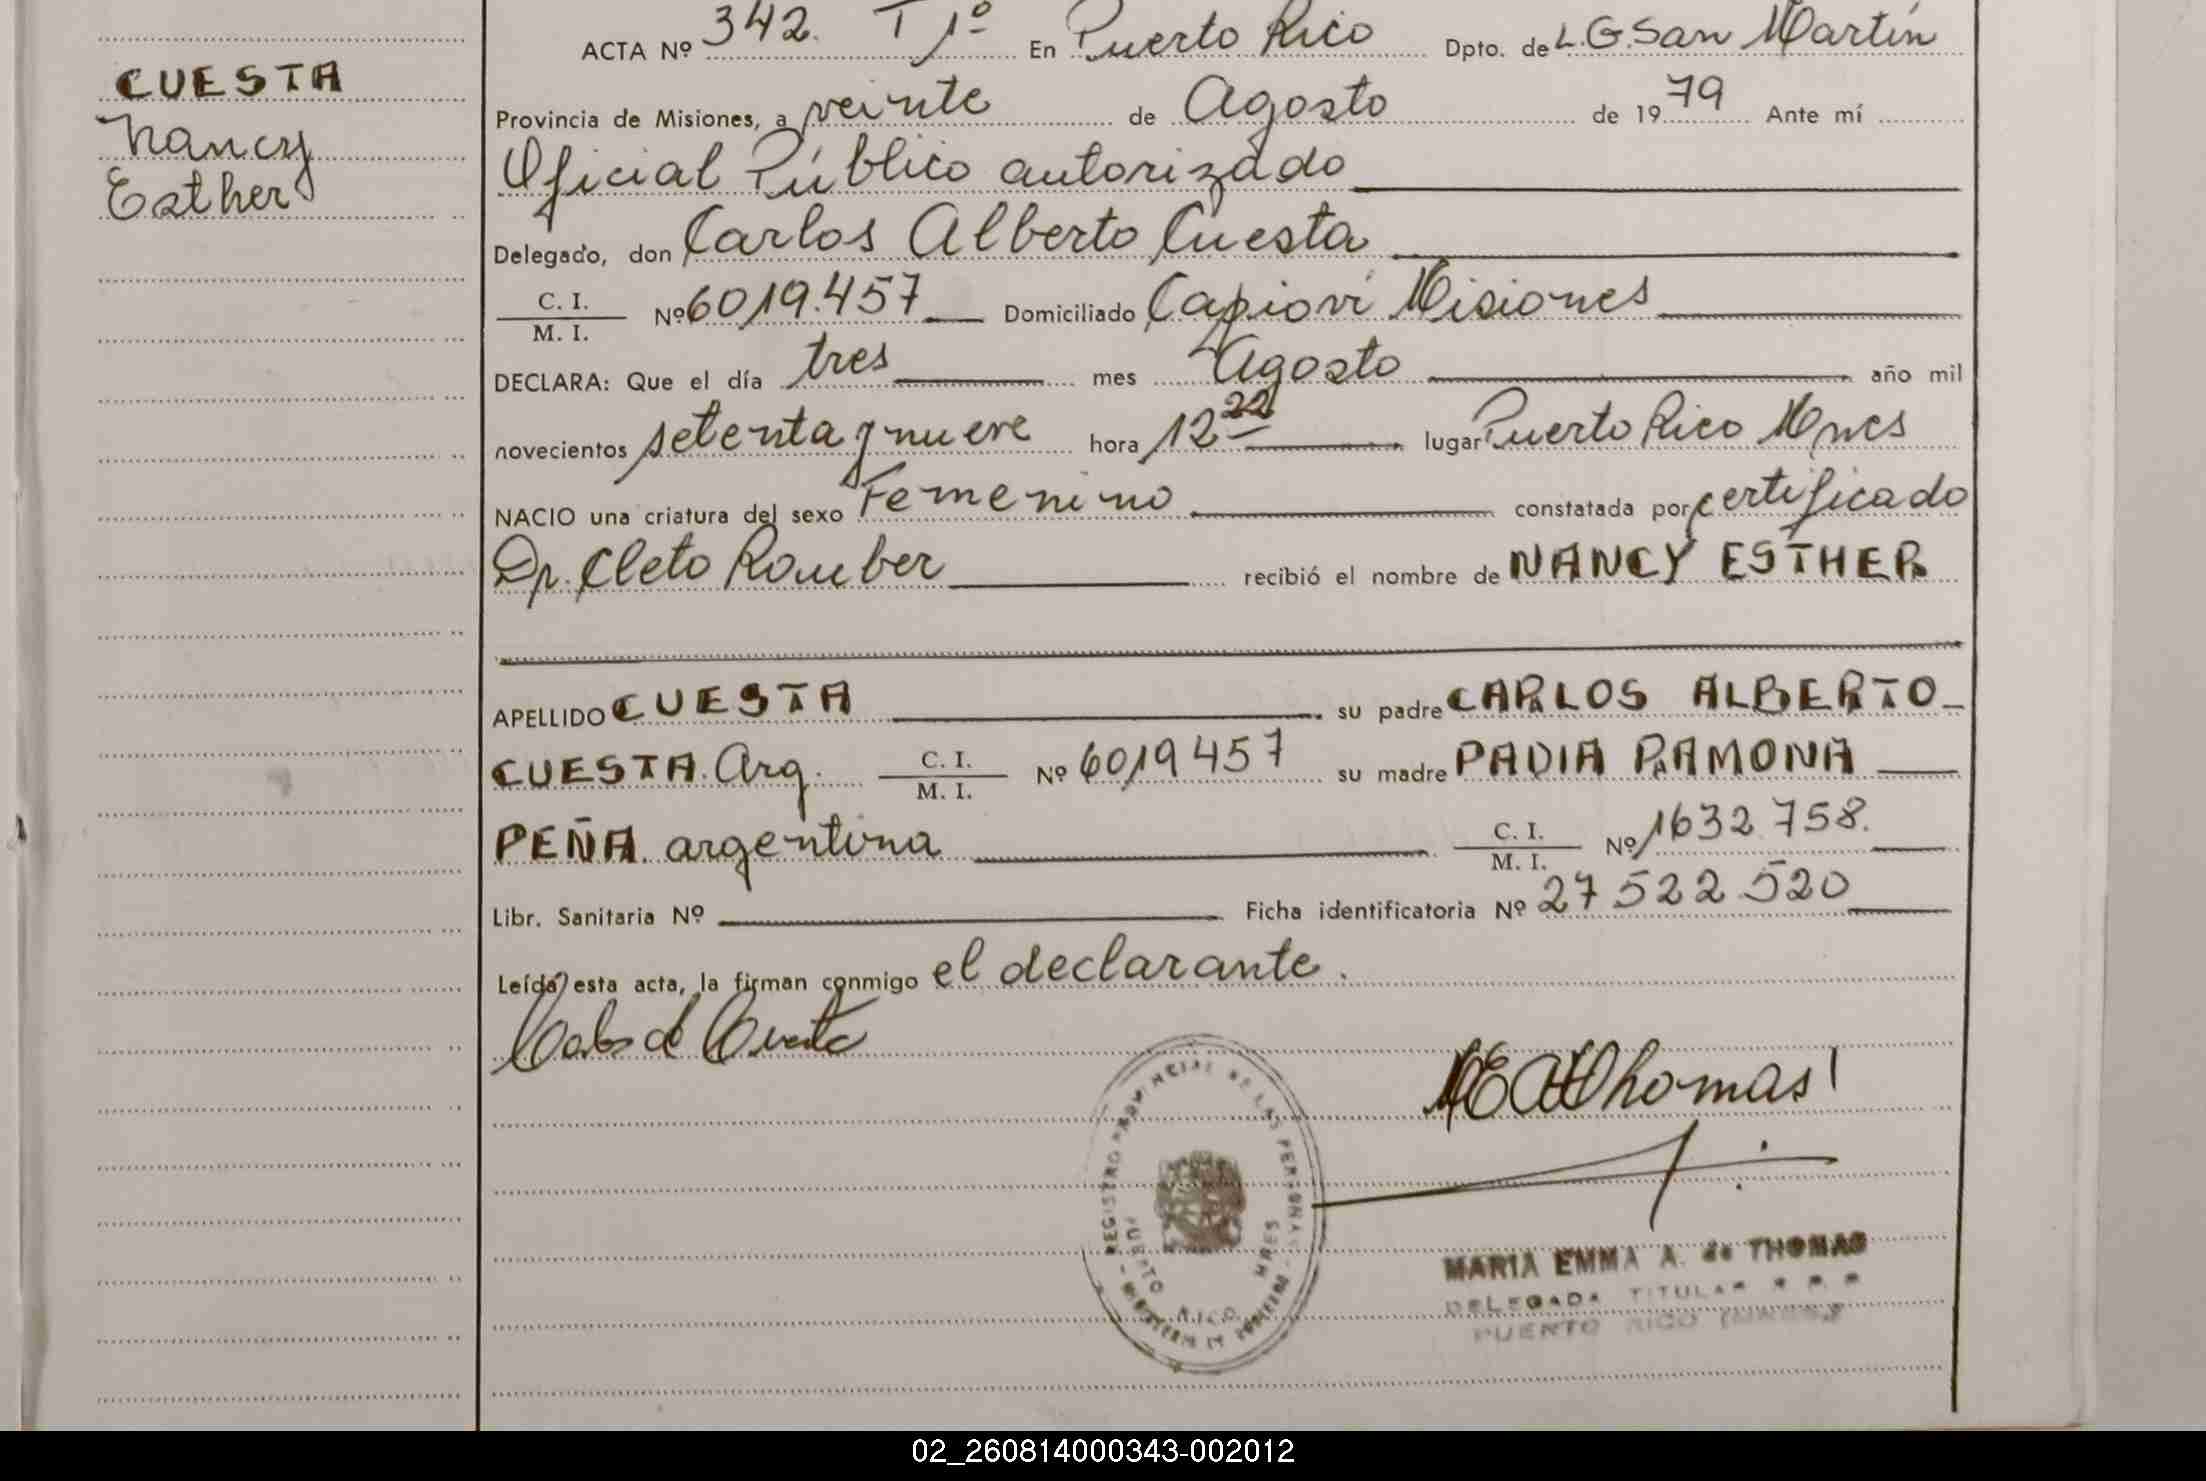 CUESTA
Nancy
Esther
ACTA Nº 342. T 1º En Puerto Rico Dpto. de L.G.San Martín
Provincia de Misiones, a veinte de Agosto de 1979 Ante mí
Oficial Público autorizado
Delegado, don Carlos Alberto Cuesta
C. I.
M. I.
Nº 6019.457 Domiciliado Capioví Misiones
DECLARA: Que el día tres mes Agosto año mil
novecientos setenta y nueve hora 12 22 lugar Puerto Rico Mnes
NACIO una criatura del sexo Femenino constatada por certificado
Dr. Cleto Rouber recibió el nombre de NANCY ESTHER
APELLIDO CUESTA su padre CARLOS ALBERTO
CUESTA. Arg. C. I. M. I. Nº 6019457 su madre PADIA RAMONA
PEÑA. argentina C. I. M. I. Nº 1632.758.
Libr. Sanitaria Nº Ficha identificatoria Nº 27 522 520
Leída esta acta, la firman conmigo el declarante.
Carlos A Cuesta
MEAThomas
REGISTRO PROVINCIAL DE LAS PERSONAS
PUERTO RICO
MNES
MINISTERIO DE GOBIERNO
MARIA EMMA A. de THOMAS
DELEGADA TITULAR R. P. P.
PUERTO RICO (MNES.)
02_260814000343-002012